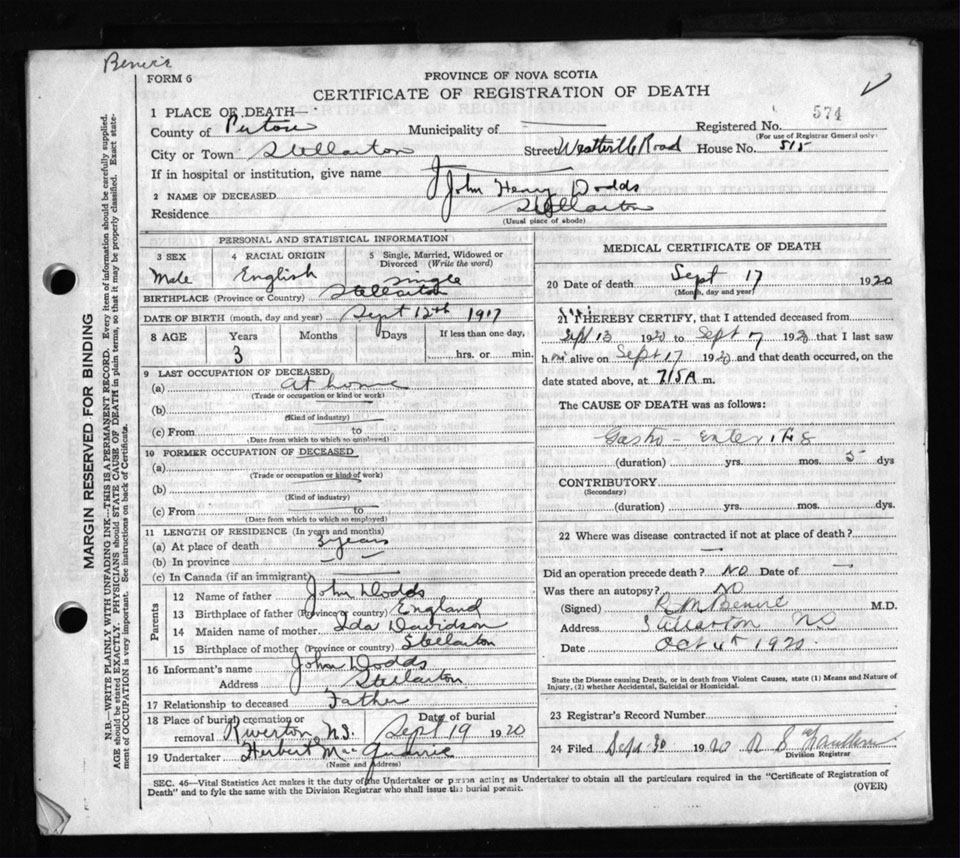 FORM 6
PROVINCE OF NOVA SCOTIA
CERTIFICATE OF REGISTRATION OF DEATH
1 PLACE OF DEATH—
Registered No. 574
(For use of Registrar General only)
County of Pictou Municipality of
City or Town Stellarton Street Westville Road House No. 515
If in hospital or institution, give name
2 NAME OF DECEASED John Henry Dodds
Residence Stellarton
(Usual place of abode)
PERSONAL AND STATISTICAL INFORMATION
3 SEX Male
4 RACIAL ORIGIN English
5 Single, Married, Widowed or Divorced (Write the word) Single
BIRTHPLACE (Province or Country) Stellarton
DATE OF BIRTH (month, day and year) Sept 12th 1917
8 AGE Years 3 Months Days If less than one day, hrs. or min.
9 LAST OCCUPATION OF DECEASED
(a) At home
(Trade or occupation or kind of work)
(b)
(Kind of industry)
(c) From to
(Date from which to which so employed)
10 FORMER OCCUPATION OF DECEASED
(a)
(Trade or occupation or kind of work)
(b)
(Kind of industry)
(c) From to
(Date from which to which so employed)
11 LENGTH OF RESIDENCE (In years and months)
(a) At place of death 3 years
(b) In province
(c) In Canada (if an immigrant)
Parents
12 Name of father John Dodds
13 Birthplace of father (Province or country) England
14 Maiden name of mother Ida Davidson
15 Birthplace of mother (Province or country) Stellarton
16 Informant's name John Dodds
Address Stellarton
17 Relationship to deceased Father
18 Place of burial, cremation or removal Riverton, N.S. Date of burial Sept 19 1920
19 Undertaker Herbert MacQuarrie
(Name and Address)
MEDICAL CERTIFICATE OF DEATH
20 Date of death Sept 17 1920
(Month, day and year)
21 I HEREBY CERTIFY, that I attended deceased from
Sept 13 1920 to Sept 17 1920 that I last saw
him alive on Sept 17 1920 and that death occurred, on the
date stated above, at 715 A m.
The CAUSE OF DEATH was as follows:
Gastro-enteritis
(duration) yrs. mos. 5 dys
CONTRIBUTORY
(Secondary)
(duration) yrs. mos. dys.
22 Where was disease contracted if not at place of death?
Did an operation precede death? No Date of —
Was there an autopsy? No
(Signed) M.D.
Address Stellarton NS
Date Oct 4th 1920
State the Disease causing Death, or in death from Violent Causes, state (1) Means and Nature of
Injury, (2) whether Accidental, Suicidal or Homicidal.
23 Registrar's Record Number
24 Filed Sept 30 1920
Division Registrar
SEC. 46—Vital Statistics Act makes it the duty of the Undertaker or person acting as Undertaker to obtain all the particulars required in the "Certificate of Registration of
Death" and to fyle the same with the Division Registrar who shall issue the burial permit.
(OVER)
MARGIN RESERVED FOR BINDING
N.B.—WRITE PLAINLY WITH UNFADING INK—THIS IS A PERMANENT RECORD. Every item of information should be carefully supplied.
AGE should be stated EXACTLY. PHYSICIANS should STATE CAUSE OF DEATH in plain terms, so that it may be properly classified. Exact state-
ment of OCCUPATION is very important. See instructions on back of Certificate.